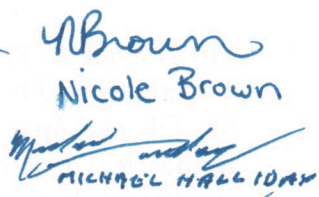 NBrown
Nicole Brown
MICHAEL HALLIDAY